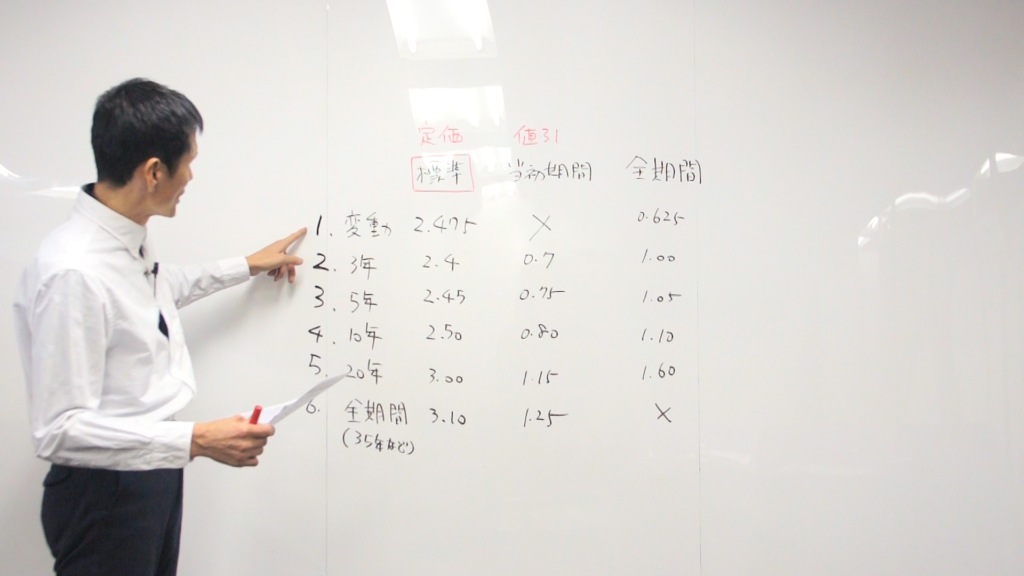 定価 値引
標準 当初期間 全期間
1. 変動 2.475 × 0.625
2. 3年 2.4 0.7 1.00
3. 5年 2.45 0.75 1.05
4. 10年 2.50 0.80 1.10
5. 20年 3.00 1.15 1.60
6. 全期間 3.10 1.25 ×
(35年など)